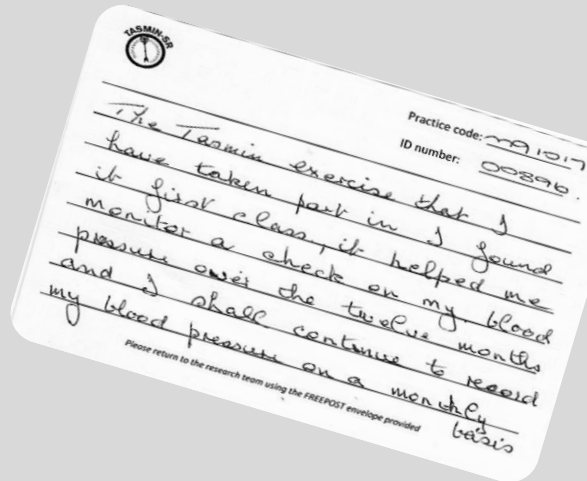 TASMIN-SR
Practice code: MA1017
ID number: 00896.
The Tasmin exercise that I
have taken part in I found
it first class, it helped me
monitor a check on my blood
pressure over the twelve months
and I shall continue to record
my blood pressure on a monthly
basis
Please return to the research team using the FREEPOST envelope provided